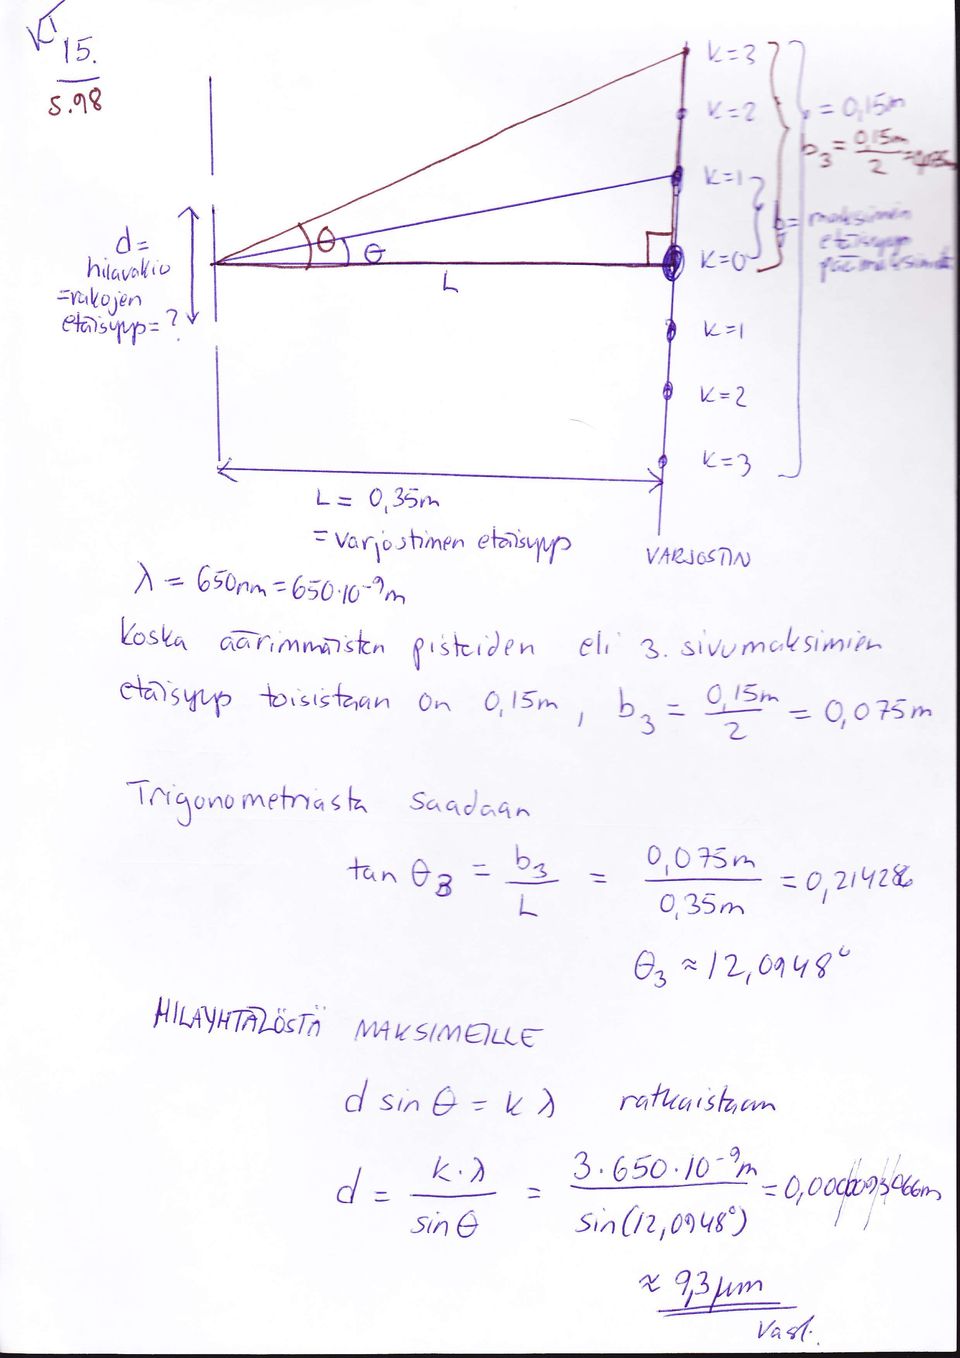 15.
s.98
k=3
k=2
k=1
k=0
k=1
k=2
k=3
= 0,15m
b₃ = 0,15m/2 =
b= maksimin
etäisyys
päämaksimista
θ
θ
L
d=
hilavakio
=rakojen
etäisyys=?
L = 0,35m
= varjostimen etäisyys
VARJOSTIN
λ = 650nm = 650·10⁻⁹m
Koska äärimmäisten pisteiden eli 3. sivumaksimien
etäisyys toisistaan on 0,15m, b₃ = 0,15m/2 = 0,075m
Trigonometriasta saadaan
tan θ₃ = b₃/L = 0,075m/0,35m = 0,21428
θ₃ ≈ 12,0948°
HILAYHTÄLÖSTÄ MAKSIMEILLE
d sin θ = k λ ratkaistaan
d = k·λ/sin θ = 3·650·10⁻⁹m/sin(12,0948°) = 0,0000093066m
≈ 9,3 μm
Vast.